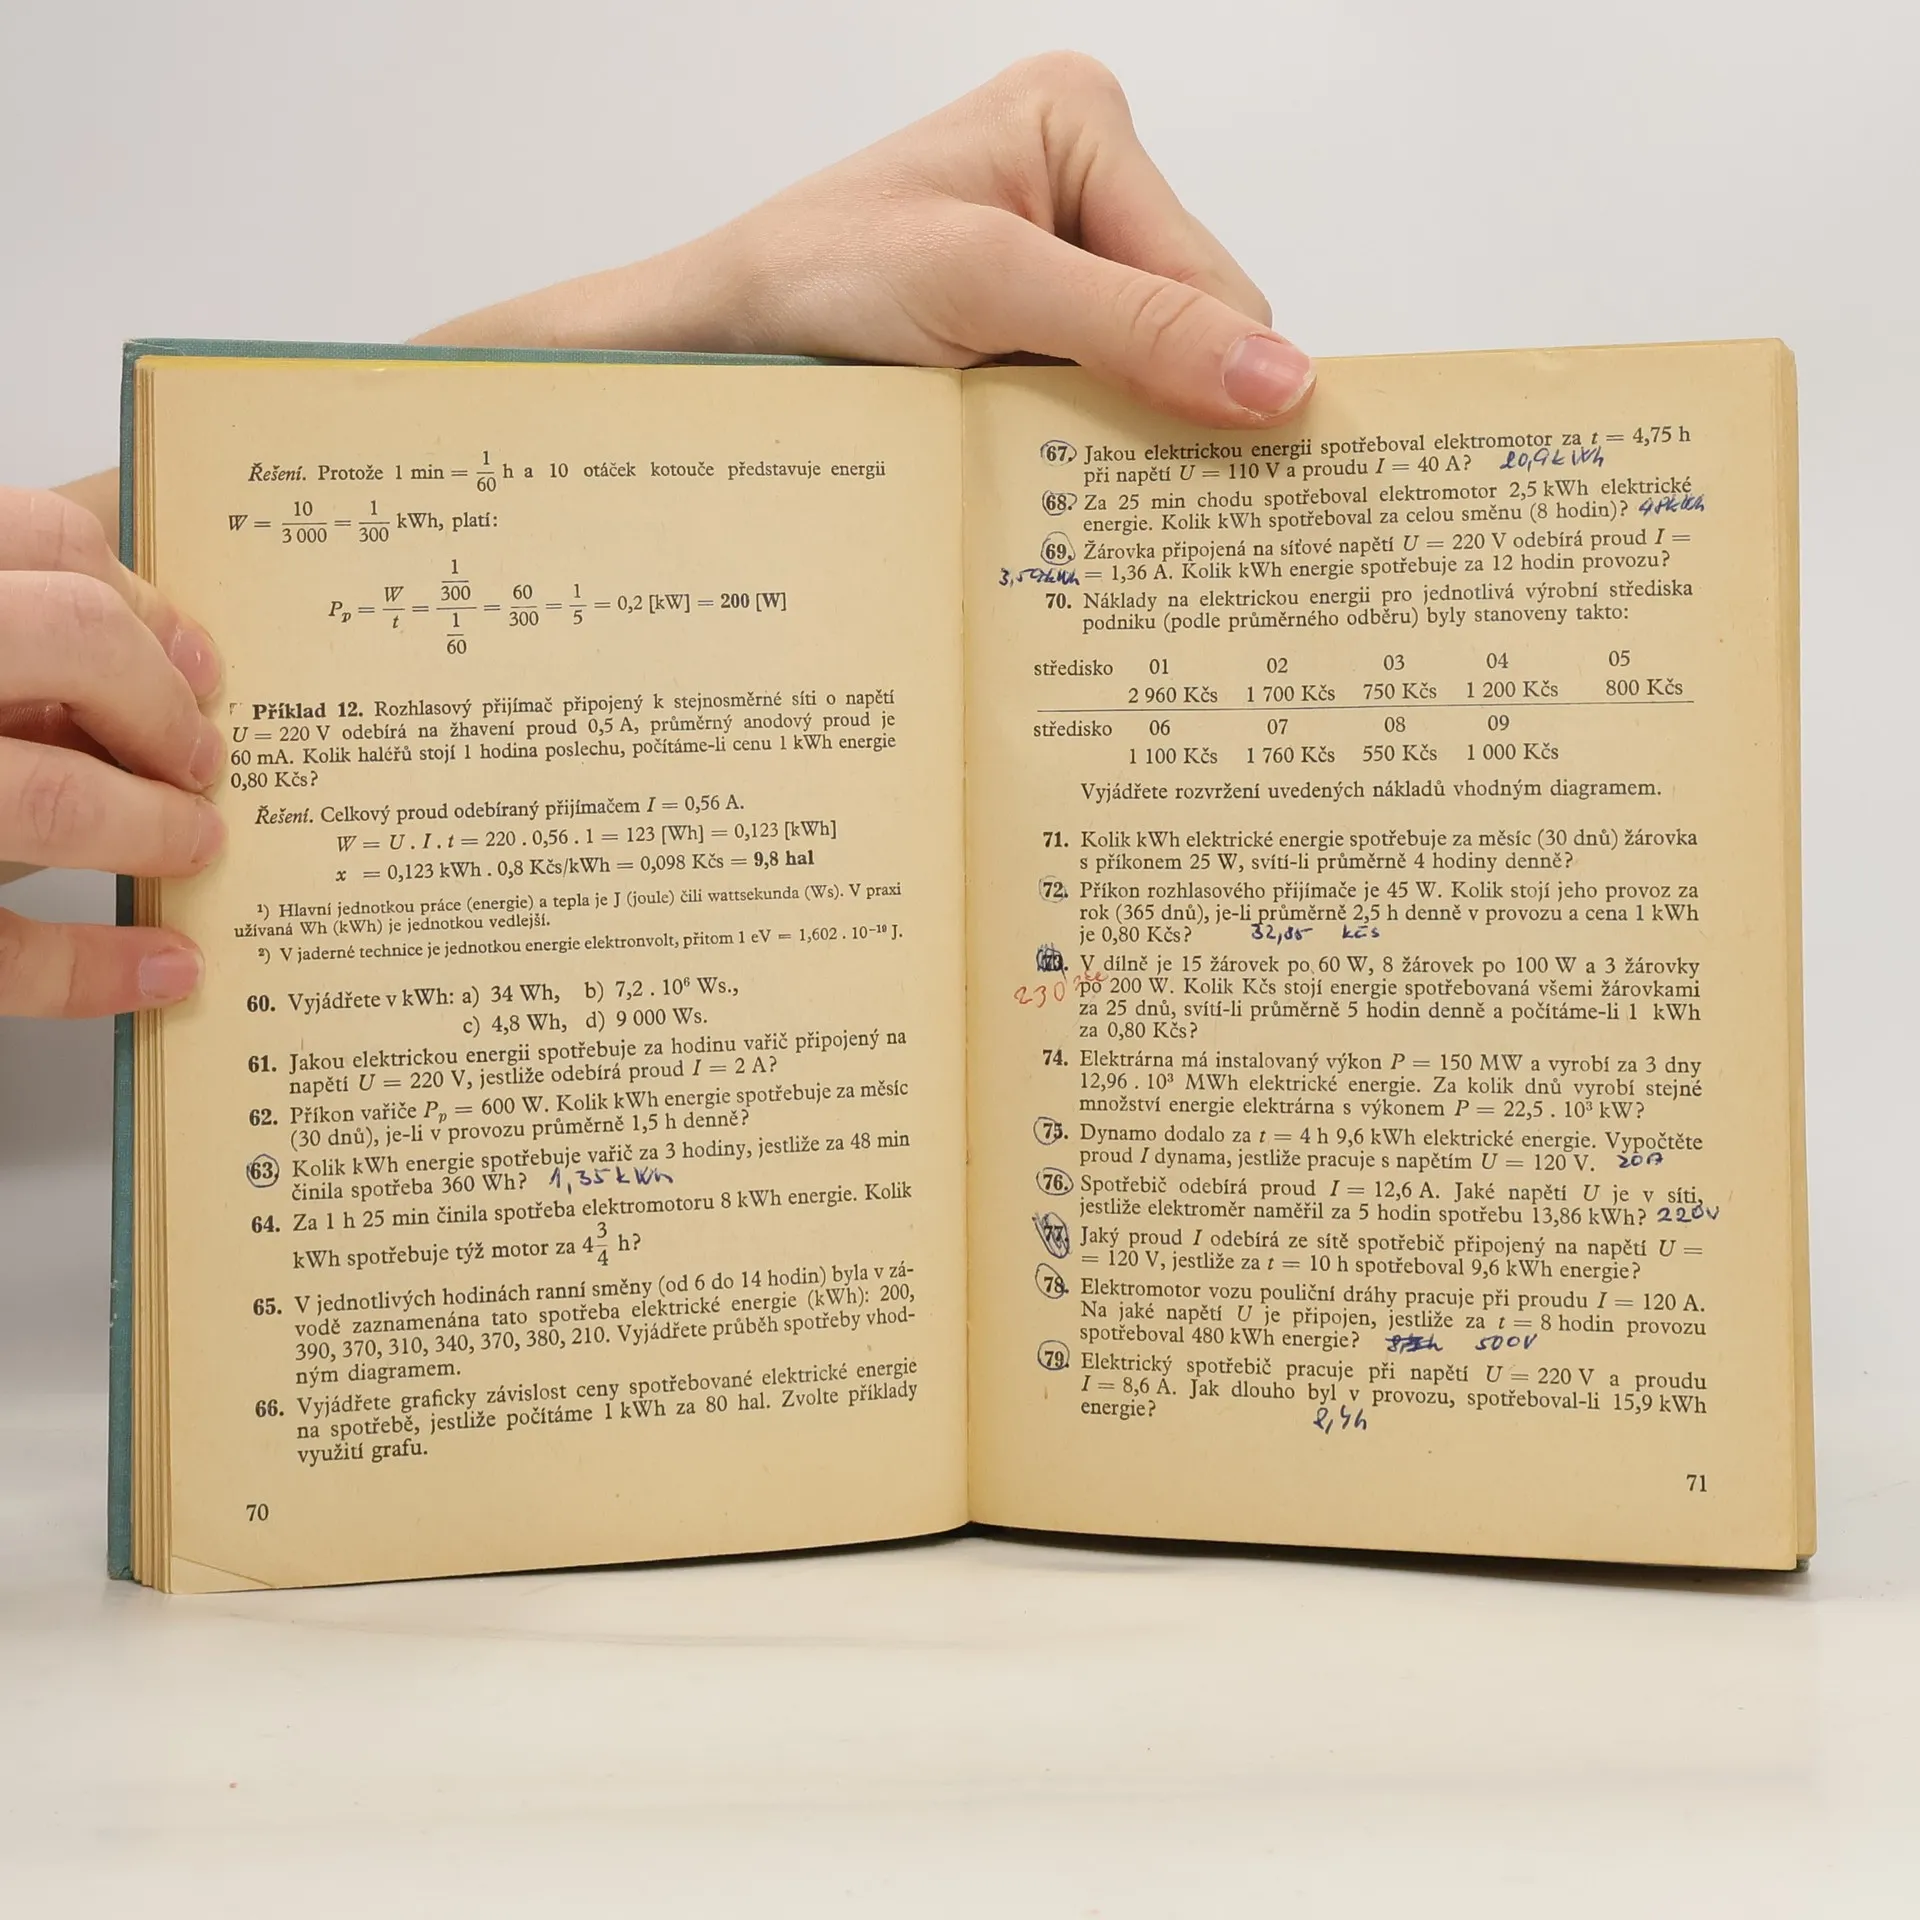 Řešení. Protože 1 min = 1/60 h a 10 otáček kotouče představuje energii
W = 10/3 000 = 1/300 kWh, platí:
P_p = W/t = (1/300)/(1/60) = 60/300 = 1/5 = 0,2 [kW] = 200 [W]
Příklad 12. Rozhlasový přijímač připojený k stejnosměrné síti o napětí
U = 220 V odebírá na žhavení proud 0,5 A, průměrný anodový proud je
60 mA. Kolik haléřů stojí 1 hodina poslechu, počítáme-li cenu 1 kWh energie
0,80 Kčs?
Řešení. Celkový proud odebíraný přijímačem I = 0,56 A.
W = U . I . t = 220 . 0,56 . 1 = 123 [Wh] = 0,123 [kWh]
x = 0,123 kWh . 0,8 Kčs/kWh = 0,098 Kčs = 9,8 hal
¹) Hlavní jednotkou práce (energie) a tepla je J (joule) čili wattsekunda (Ws). V praxi
užívaná Wh (kWh) je jednotkou vedlejší.
²) V jaderné technice je jednotkou energie elektronvolt, přitom 1 eV = 1,602 . 10⁻¹⁹ J.
60. Vyjádřete v kWh: a) 34 Wh, b) 7,2 . 10⁶ Ws.,
c) 4,8 Wh, d) 9 000 Ws.
61. Jakou elektrickou energii spotřebuje za hodinu vařič připojený na
napětí U = 220 V, jestliže odebírá proud I = 2 A?
62. Příkon vařiče P_p = 600 W. Kolik kWh energie spotřebuje za měsíc
(30 dnů), je-li v provozu průměrně 1,5 h denně?
63. Kolik kWh energie spotřebuje vařič za 3 hodiny, jestliže za 48 min
činila spotřeba 360 Wh? 1,35 kWh
64. Za 1 h 25 min činila spotřeba elektromotoru 8 kWh energie. Kolik
kWh spotřebuje týž motor za 4 3/4 h?
65. V jednotlivých hodinách ranní směny (od 6 do 14 hodin) byla v zá-
vodě zaznamenána tato spotřeba elektrické energie (kWh): 200,
390, 370, 310, 340, 370, 380, 210. Vyjádřete průběh spotřeby vhod-
ným diagramem.
66. Vyjádřete graficky závislost ceny spotřebované elektrické energie
na spotřebě, jestliže počítáme 1 kWh za 80 hal. Zvolte příklady
využití grafu.
70
67. Jakou elektrickou energii spotřeboval elektromotor za t = 4,75 h
při napětí U = 110 V a proudu I = 40 A? 20,9 kWh
68. Za 25 min chodu spotřeboval elektromotor 2,5 kWh elektrické
energie. Kolik kWh spotřeboval za celou směnu (8 hodin)? 48 kWh
69. Žárovka připojená na síťové napětí U = 220 V odebírá proud I =
3,59 kWh = 1,36 A. Kolik kWh energie spotřebuje za 12 hodin provozu?
70. Náklady na elektrickou energii pro jednotlivá výrobní střediska
podniku (podle průměrného odběru) byly stanoveny takto:
středisko 01 02 03 04 05
2 960 Kčs 1 700 Kčs 750 Kčs 1 200 Kčs 800 Kčs
středisko 06 07 08 09
1 100 Kčs 1 760 Kčs 550 Kčs 1 000 Kčs
Vyjádřete rozvržení uvedených nákladů vhodným diagramem.
71. Kolik kWh elektrické energie spotřebuje za měsíc (30 dnů) žárovka
s příkonem 25 W, svítí-li průměrně 4 hodiny denně?
72. Příkon rozhlasového přijímače je 45 W. Kolik stojí jeho provoz za
rok (365 dnů), je-li průměrně 2,5 h denně v provozu a cena 1 kWh
je 0,80 Kčs? 32,85 kčs
73. V dílně je 15 žárovek po 60 W, 8 žárovek po 100 W a 3 žárovky
230 po 200 W. Kolik Kčs stojí energie spotřebovaná všemi žárovkami
za 25 dnů, svítí-li průměrně 5 hodin denně a počítáme-li 1 kWh
za 0,80 Kčs?
74. Elektrárna má instalovaný výkon P = 150 MW a vyrobí za 3 dny
12,96 . 10³ MWh elektrické energie. Za kolik dnů vyrobí stejné
množství energie elektrárna s výkonem P = 22,5 . 10³ kW?
75. Dynamo dodalo za t = 4 h 9,6 kWh elektrické energie. Vypočtěte
proud I dynama, jestliže pracuje s napětím U = 120 V. 20A
76. Spotřebič odebírá proud I = 12,6 A. Jaké napětí U je v síti,
jestliže elektroměr naměřil za 5 hodin spotřebu 13,86 kWh? 220V
77. Jaký proud I odebírá ze sítě spotřebič připojený na napětí U =
= 120 V, jestliže za t = 10 h spotřeboval 9,6 kWh energie?
78. Elektromotor vozu pouliční dráhy pracuje při proudu I = 120 A.
Na jaké napětí U je připojen, jestliže za t = 8 hodin provozu
spotřeboval 480 kWh energie? 500V
79. Elektrický spotřebič pracuje při napětí U = 220 V a proudu
I = 8,6 A. Jak dlouho byl v provozu, spotřeboval-li 15,9 kWh
energie? 8,4h
71